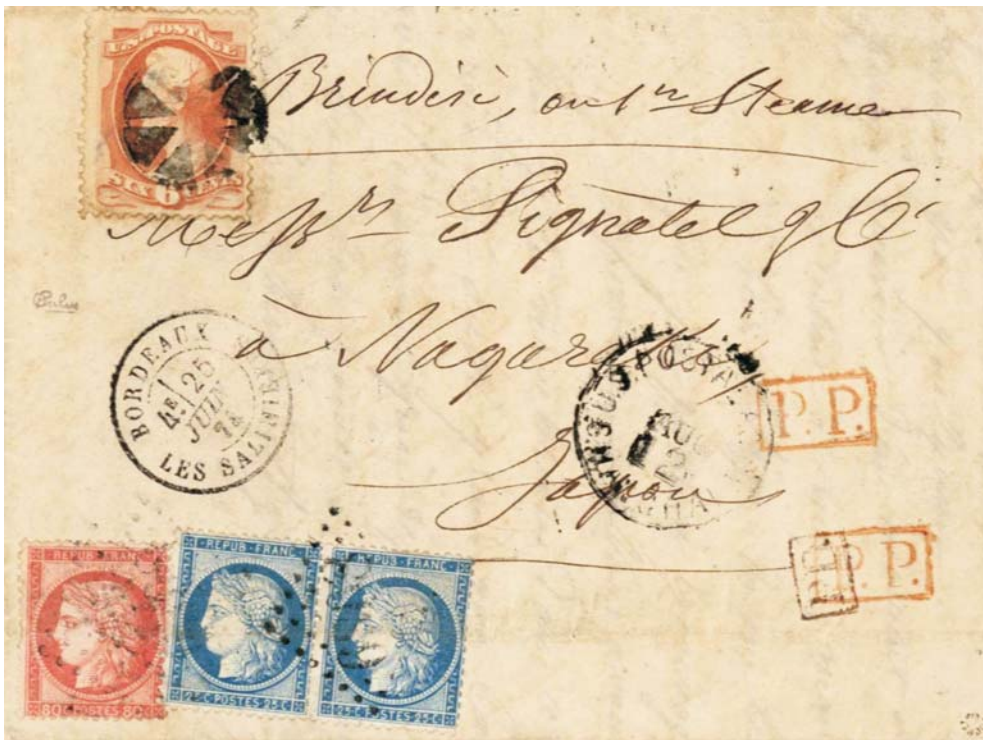 U.S. POSTAGE
SIX 6 CENTS
Brindisi, on 1er Steamer
Messrs Pignatel & Cie
à Nagasaki
Japon
BORDEAUX
4E 25
JUIN
74
LES SALINIERES
U.S. POSTAL
AUG
P.P.
P.P.
REPUB FRANC
80 C POSTES 80 C
REPUB FRANC
25 C POSTES 25 C
REPUB FRANC
25 C POSTES 25 C